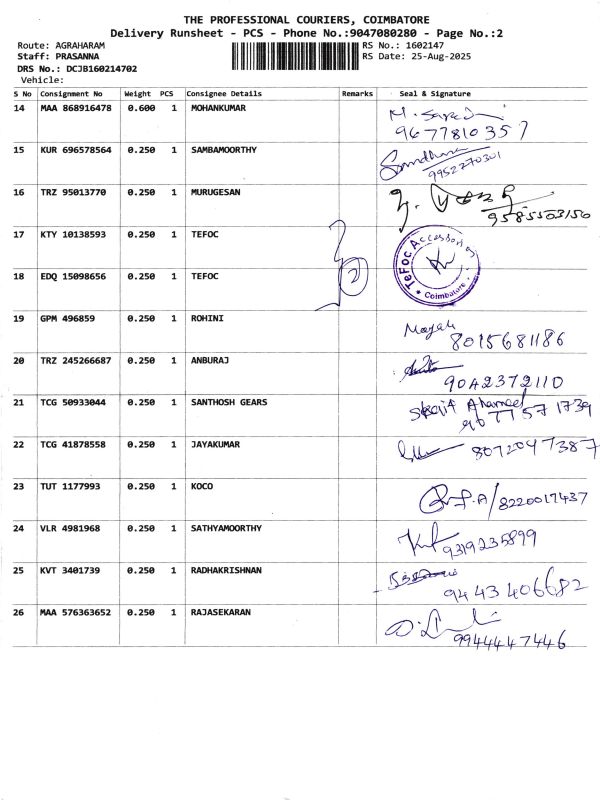 THE PROFESSIONAL COURIERS, COIMBATORE
Delivery Runsheet - PCS - Phone No.:9047080280 - Page No.:2
Route: AGRAHARAM
RS No.: 1602147
Staff: PRASANNA
RS Date: 25-Aug-2025
DRS No.: DCJB160214702
Vehicle:
S No Consignment No Weight PCS Consignee Details Remarks Seal & Signature
14 MAA 868916478 0.600 1 MOHANKUMAR
9677810357
15 KUR 696578564 0.250 1 SAMBAMOORTHY
9952270301
16 TRZ 95013770 0.250 1 MURUGESAN
9585503150
17 KTY 10138593 0.250 1 TEFOC
TeFoc Accessories
Coimbatore
2
18 EDQ 15098656 0.250 1 TEFOC
19 GPM 496859 0.250 1 ROHINI
8015681186
20 TRZ 245266687 0.250 1 ANBURAJ
9042372110
21 TCG 50933044 0.250 1 SANTHOSH GEARS
90 77 57 1739
22 TCG 41878558 0.250 1 JAYAKUMAR
8072047387
23 TUT 1177993 0.250 1 KOCO
8220017437
24 VLR 4981968 0.250 1 SATHYAMOORTHY
9319235899
25 KVT 3401739 0.250 1 RADHAKRISHNAN
9443406682
26 MAA 576363652 0.250 1 RAJASEKARAN
9944447446